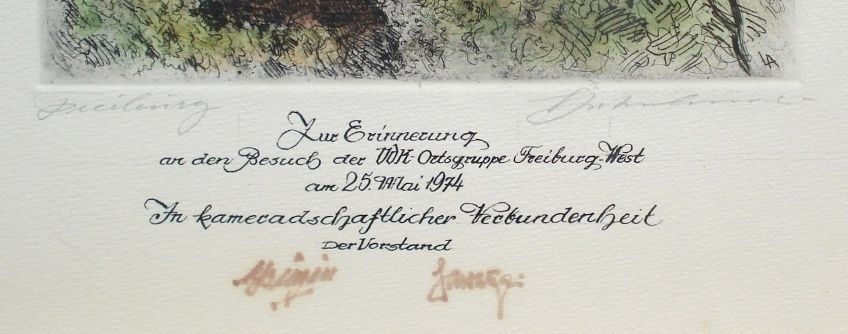 Freiburg
Zur Erinnerung
an den Besuch der VdK-Ortsgruppe Freiburg-West
am 25. Mai 1974
In kameradschaftlicher Verbundenheit
Der Vorstand